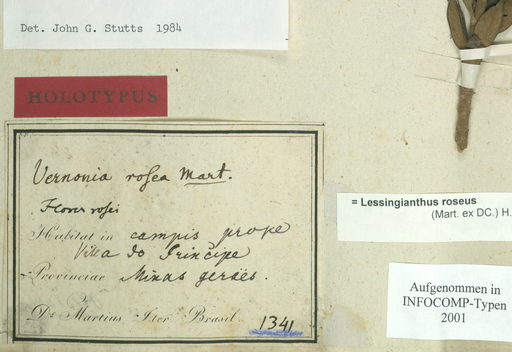 Det. John G. Stutts 1984
HOLOTYPUS
Vernonia rosea Mart.
Flores rosei
Habitat in campis prope
Villa do Principe
Provinciae Minas geraës.
Dr Martius Iter Brasil.
1341
= Lessingianthus roseus
(Mart. ex DC.) H.
Aufgenommen in
INFOCOMP-Typen
2001